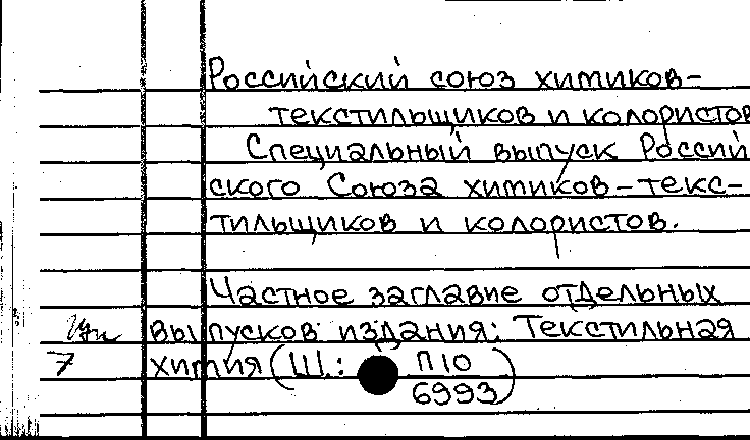 Российский союз химиков-
текстильщиков и колористов
Специальный выпуск Россий
ского Союза химиков-текс-
тильщиков и колористов.
Частное заглавие отдельных
выпусков издания: Текстильная
7 химия (Ш.: П10
6993)